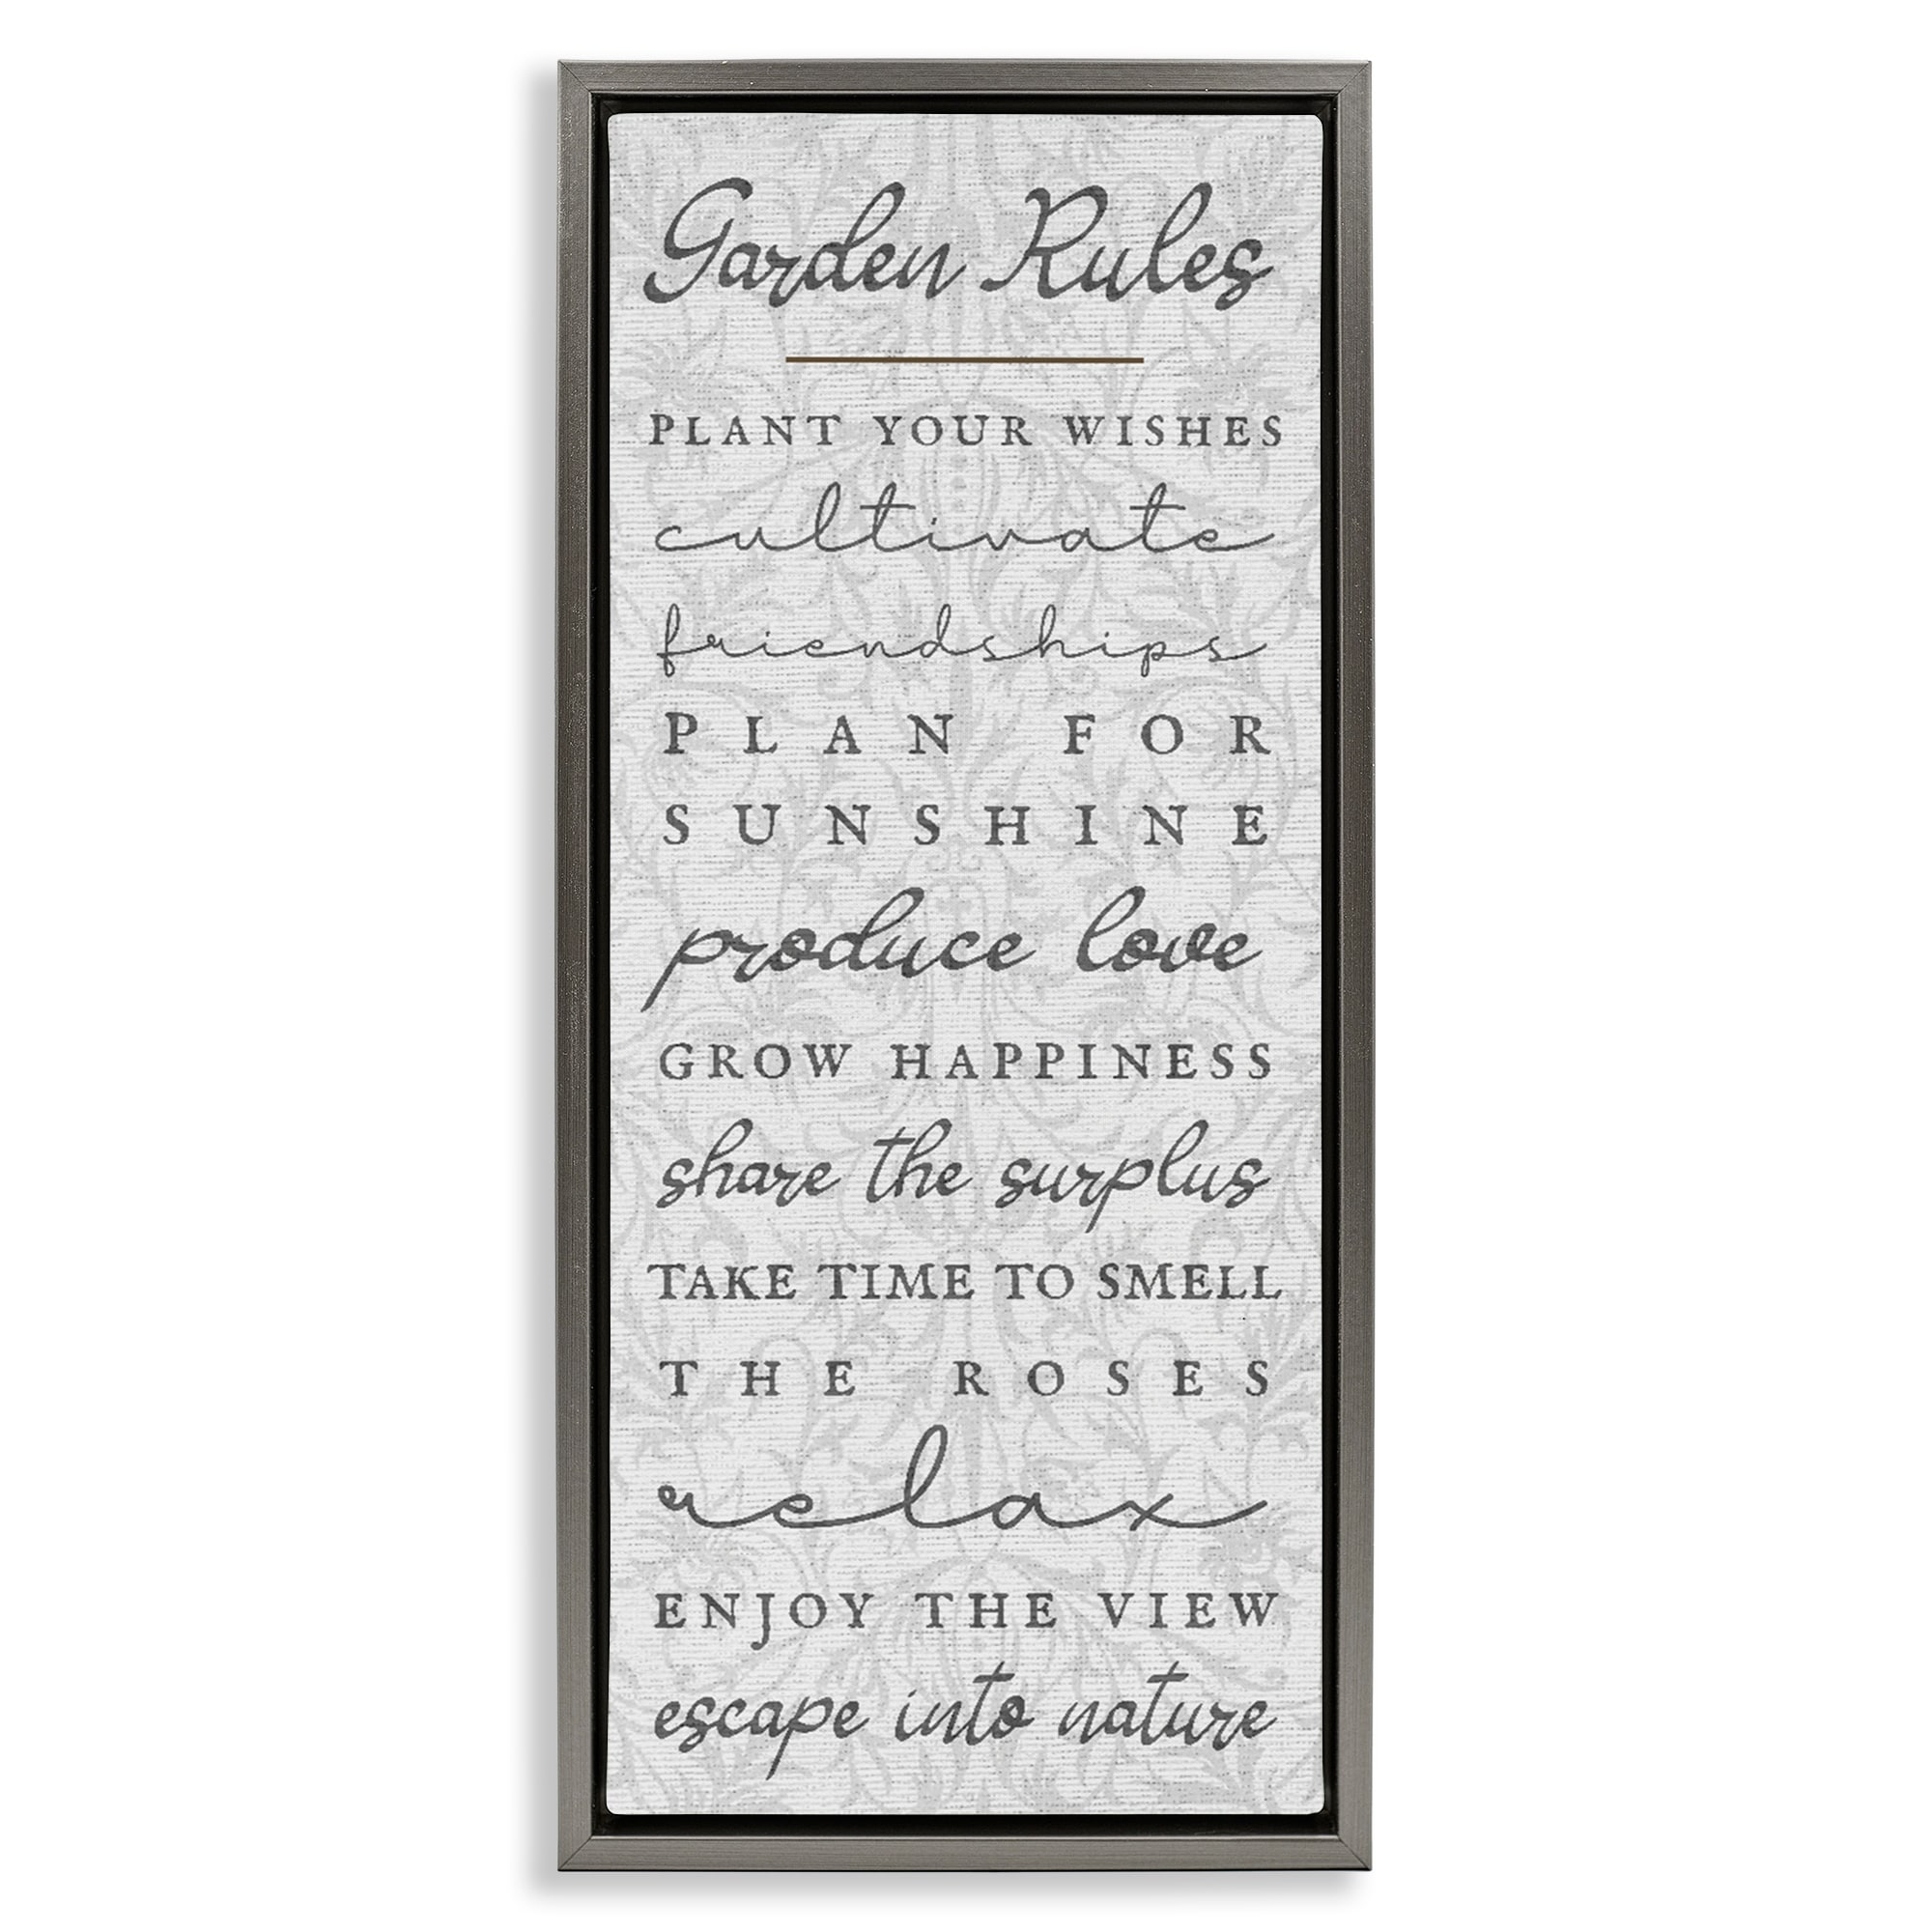 Garden Rules
PLANT YOUR WISHES
cultivate
friendships
PLAN FOR
SUNSHINE
produce love
GROW HAPPINESS
share the surplus
TAKE TIME TO SMELL
THE ROSES
relax
ENJOY THE VIEW
escape into nature